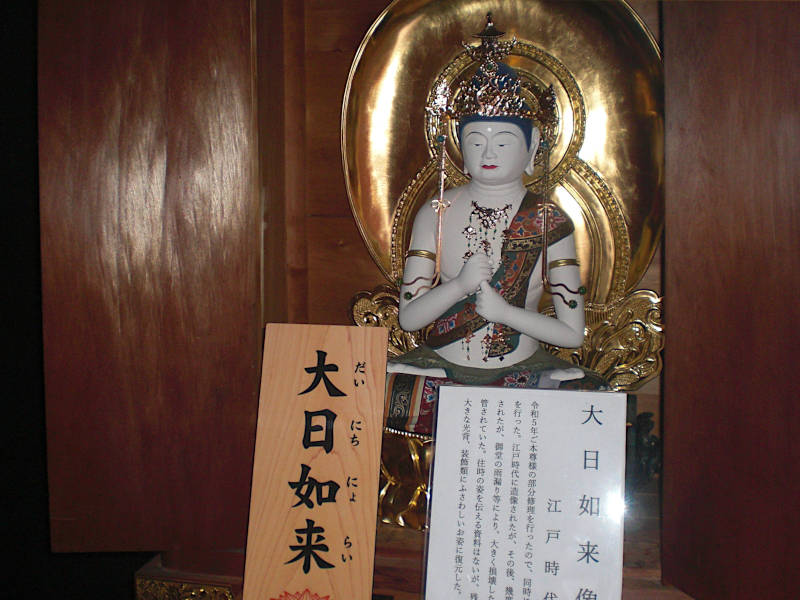 大日如来
だい にち にょ らい
大日如来像
江戸時代
令和5年ご本尊様の部分修理を行ったので、同時に
を行った。江戸時代に造像されたが、その後、幾度
されたが、御堂の雨漏り等により、大きく損壊した
管されていた。往時の姿を伝える資料はないが、残
大きな光背、装飾類にふさわしいお姿に復元した。